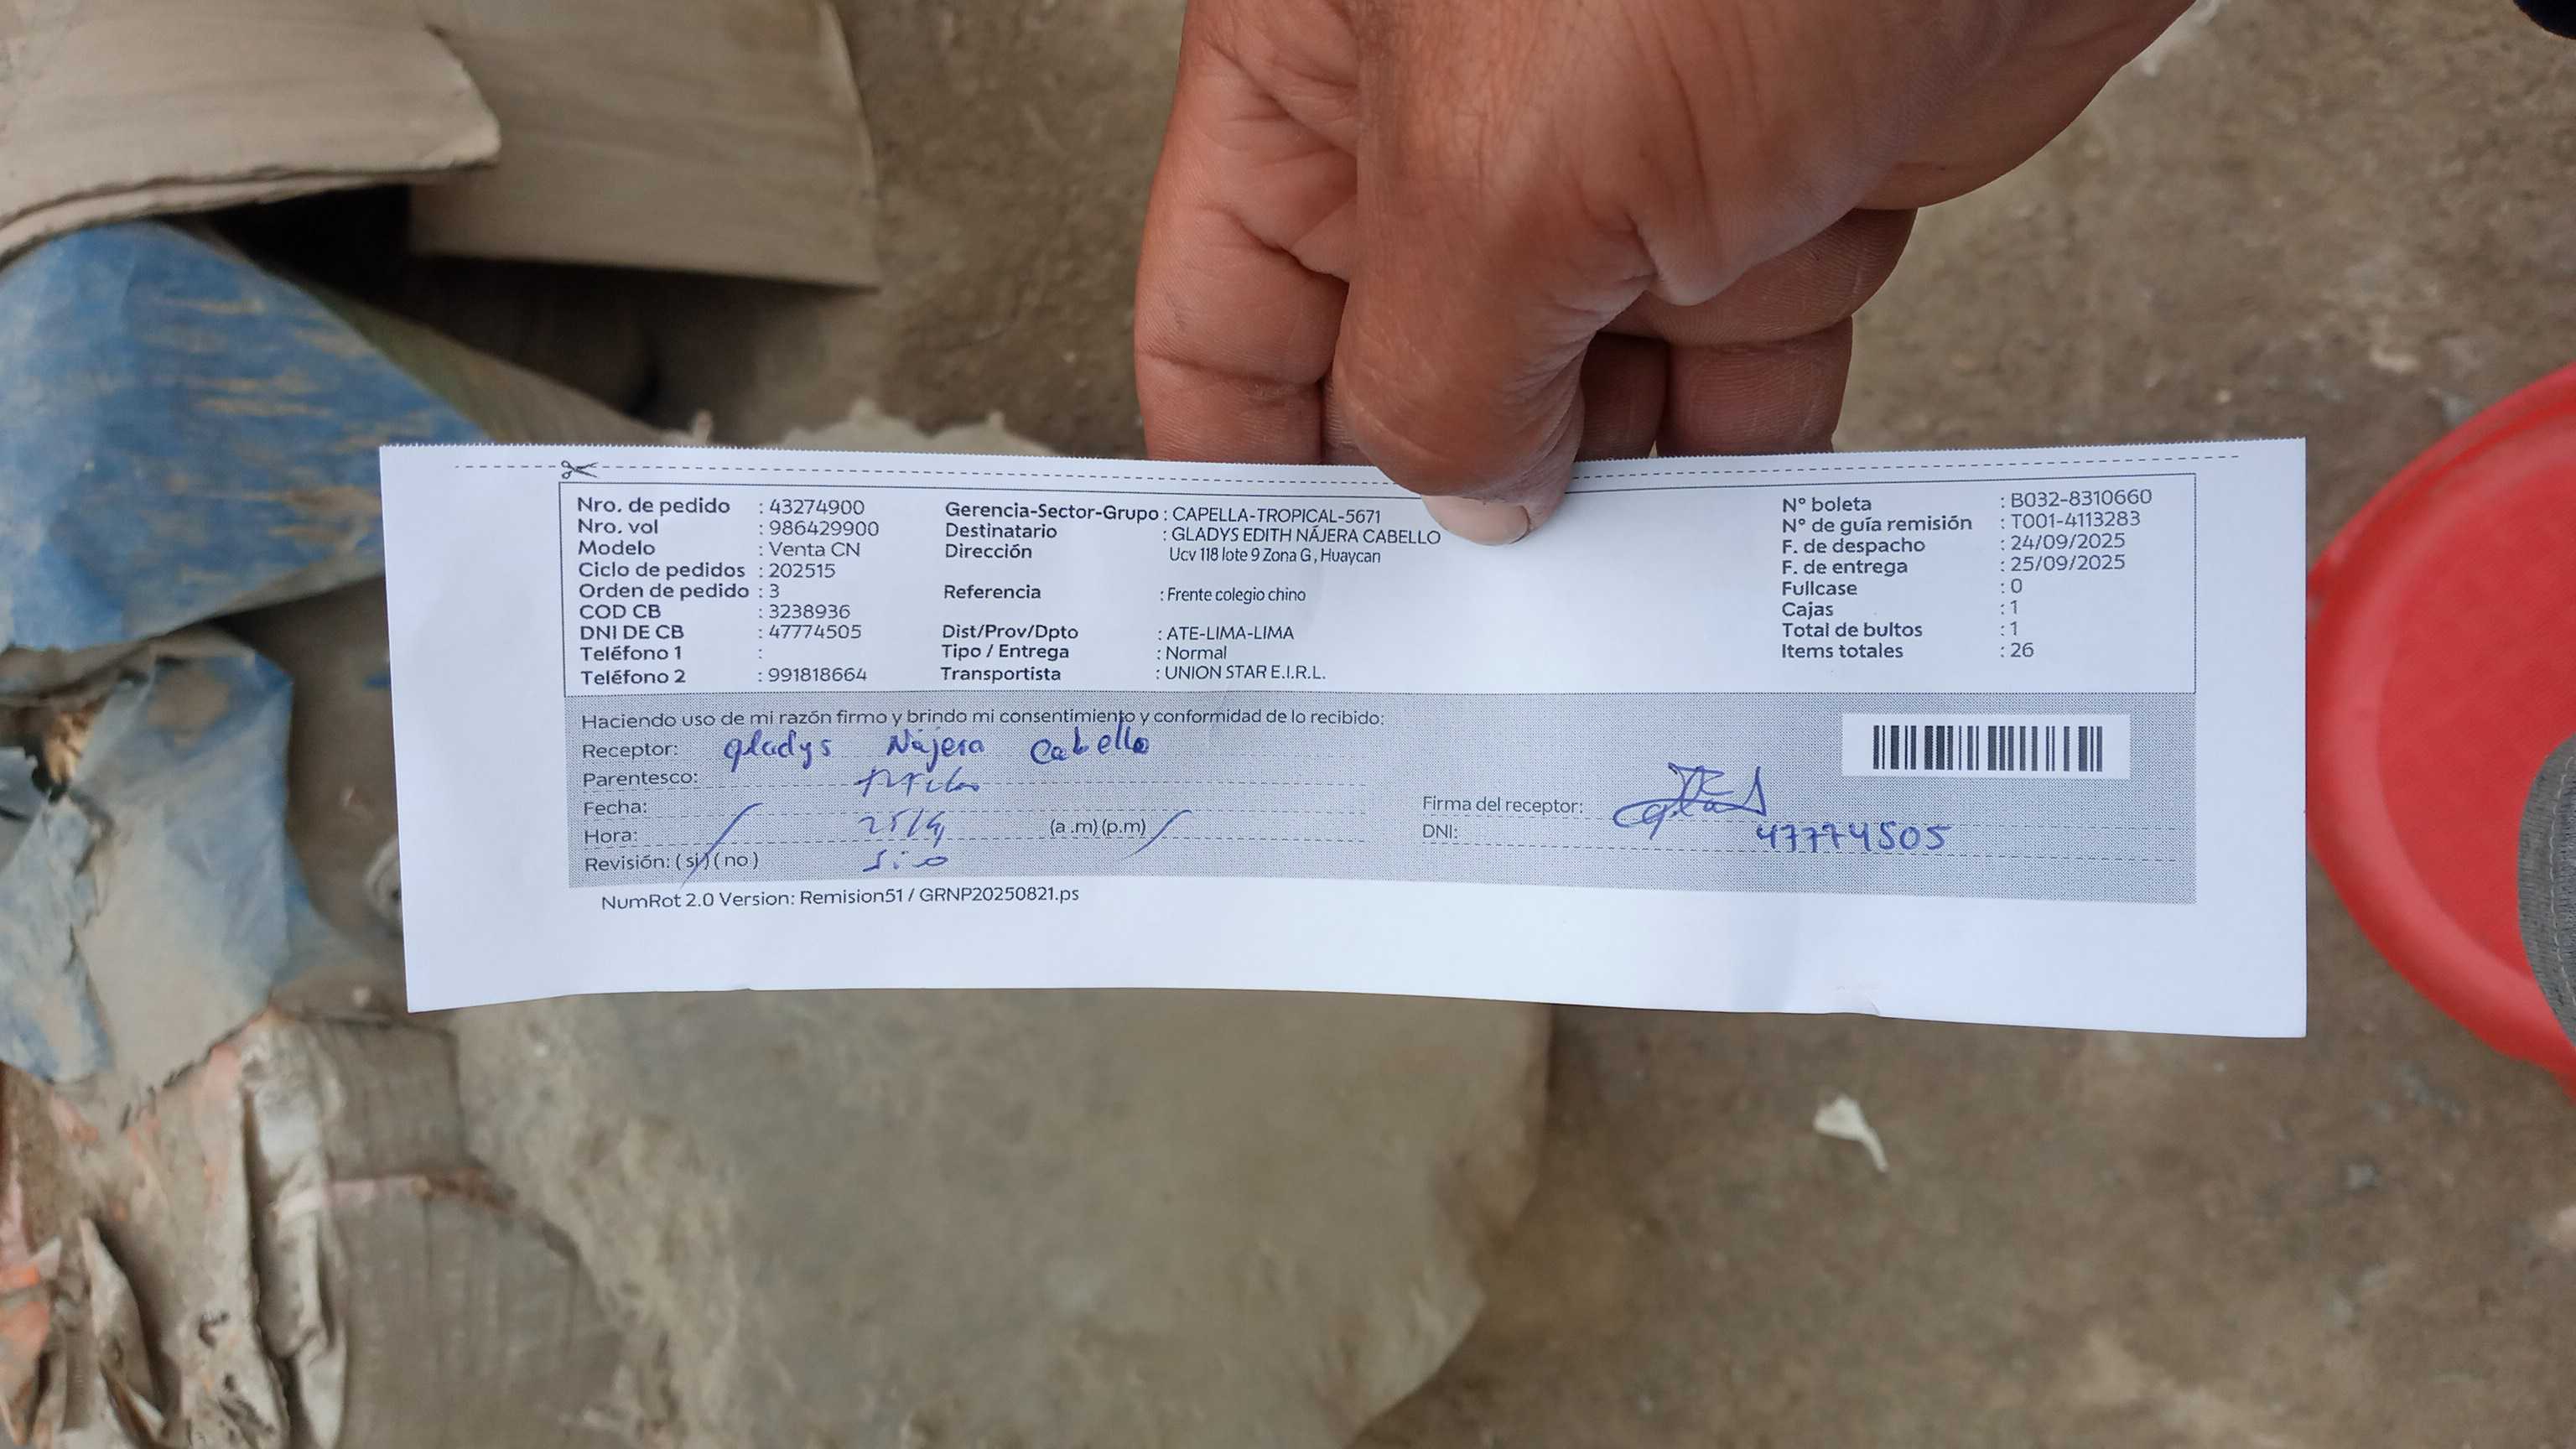 Nro. de pedido : 43274900
Nro. vol : 986429900
Modelo : Venta CN
Ciclo de pedidos : 202515
Orden de pedido : 3
COD CB : 3238936
DNI DE CB : 47774505
Teléfono 1 :
Teléfono 2 : 991818664
Gerencia-Sector-Grupo : CAPELLA-TROPICAL-5671
Destinatario : GLADYS EDITH NÁJERA CABELLO
Dirección Ucv 118 lote 9 Zona G , Huaycan
Referencia : Frente colegio chino
Dist/Prov/Dpto : ATE-LIMA-LIMA
Tipo / Entrega : Normal
Transportista : UNION STAR E.I.R.L.
N° boleta : B032-8310660
N° de guía remisión : T001-4113283
F. de despacho : 24/09/2025
F. de entrega : 25/09/2025
Fullcase : 0
Cajas : 1
Total de bultos : 1
Items totales : 26
Haciendo uso de mi razón firmo y brindo mi consentimiento y conformidad de lo recibido:
Receptor: gladys Nájera Cabello
Parentesco:
Fecha: 25/9
Hora: (a .m) (p.m)
Revisión: ( si ) ( no )
Firma del receptor:
DNI: 47774505
NumRot 2.0 Version: Remision51 / GRNP20250821.ps